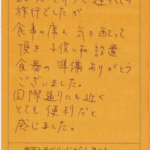 旅行でしたが
食事の席も気を配って
頂き子供いす設置
食器の準備ありがとう
ございました。
国際通りにも近く
とても便利だと
感じました。